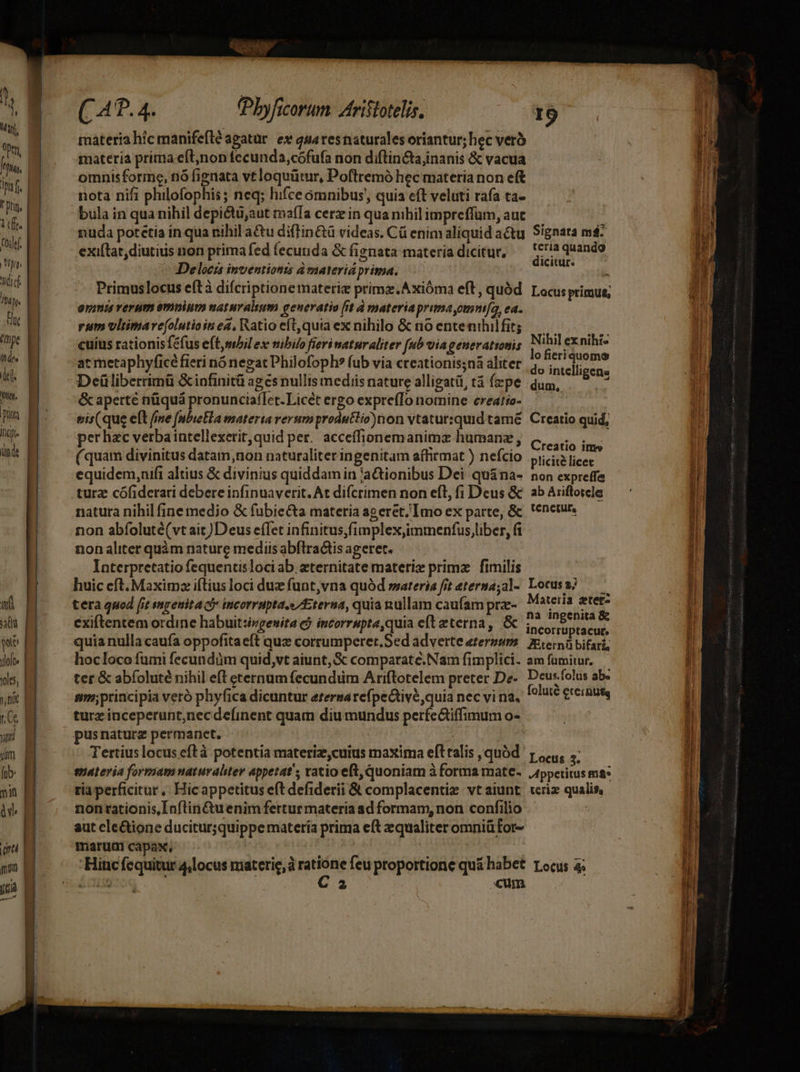 CAP. 4. Phyſicorum Ariſtotelis. 19
materia hîc manifeſtè agatur ex qua res naturales oriantur; hęc verò
materia prima eſt, non fecunda, cõfuſa non diſtincta, inanis & vacua
omnis formę, nõ ſignata vt loquũtur, Poſtremò hęc materia non eſt
nota niſi philoſophis; neq; hiſce omnibus, quia eſt veluti raſa ta-
bula in qua nihil depictũ, aut maſſa ceræ in qua nihil impreſſum, aut
nuda potẽtia in qua nihil actu diſtinctũ videas. Cũ enim aliquid actu
exiſtat, diutius non prima ſed ſecunda & ſignata materia dicitur.
Signata má-
teria quando
dicitur.
De locis inventionis à materiá prima.
Primus locus eſt à diſcriptione materiæ primæ. Axióma eſt, quòd
Locus primus,
omnis rerum omnium naturalium generatio fit à materia prima, omnisq́; ea-
rum vltima reſolutio in eã. Ratio eſt, quia ex nihilo & nõ ente nihil fit;
cuius rationis ſẽſus eſt, nihil ex nihilo fieri naturaliter ſub via generationis
Nihil ex nihi-
at metaphyſicè fieri nõ negat Philoſophꝰ ſub via creationis; nã aliter
lo fieri quomo
do intelligen-
Deũ liberrimũ & infinitũ agẽs nullis mediis naturę alligatũ, tã ſæpe
dum,
& apertè nũquã pronunciaſſet. Licèt ergo expreſſo nomine creatio-
nis (que eſt ſine ſubiecta materia rerum productio) non vtatur: quid tamẽ
Creatio quid,
per hæc verba intellexerit, quid per acceſſionem animæ humanæ,
(quam divinitus datam, non naturaliter ingenitam affirmat) neſcio
Creatio im-
plicitè licet
equidem, niſi altius & divinius quiddam in actionibus Dei quàm na-
non expreſſe
turæ cõſiderari debere inſinuaverit. At diſcrimen non eſt, ſi Deus &
ab Ariſtotele
natura nihil ſine medio & ſubiecta materia agerẽt. Imo ex parte, &
tenetur.
non abſolutè (vt ait) Deus eſſet infinitus, ſimplex, immenſus, liber, ſi
non aliter quàm naturę mediis abſtractis ageret.
Interpretatio ſequentis loci ab æternitate materiæ primæ ſimilis
huic eſt. Maximæ iſtius loci duæ ſunt, vna quòd materia ſit eterna; al-
Locus 2.
tera quod ſit ingenita & incorrupta. Æterna, quia nullam cauſam præ-
Materia æter-
exiſtentem ordine habuit: ingenita & incorrupta, quia eſt æterna, &
na ingenita &
incorruptacur.
quia nulla cauſa oppoſita eſt quæ corrumperet. Sed adverte æternum
Æternũ bifariã
hoc loco ſumi ſecundùm quid, vt aiunt, & comparatè. Nam ſimplici-
am ſumitur.
ter & abſolutè nihil eſt ęternum ſecundùm Ariſtotelem preter De-
Deus ſolus ab-
um; principia verò phyſica dicuntur æterna reſpectivè, quia nec vi na-
ſolutè ęternus,
turæ inceperunt, nec deſinent quam diu mundus perfectiſſimum o-
pus naturæ permanet.
Tertius locus eſt à potentia materiæ, cuius maxima eſt talis, quòd
Locus 3.
materia formam naturaliter appetat; ratio eſt, quoniam à forma mate-
Appetitus ma-
ria perficitur. Hic appetitus eſt deſiderii & complacentiæ vt aiunt
teriæ qualis,
non rationis, Inſtinctu enim fertur materia ad formam, non conſilio
aut electione ducitur; quippe materia prima eſt æqualiter omniũ for-
marum capax,
Hinc ſequitur 4. locus materię, à ratione ſeu proportione quã habet
Locus 4.
C 2 cùm